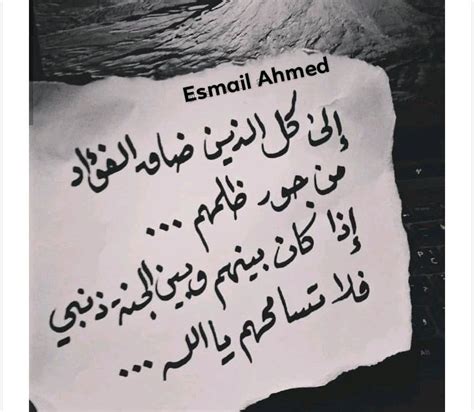 Esmail Ahmed
إلى كل الذين ضاق الفؤاد
من جور ظلمهم ...
إذا كان بينهم وبين الجنة ذنبي
فلا تسامحهم يا الله ...